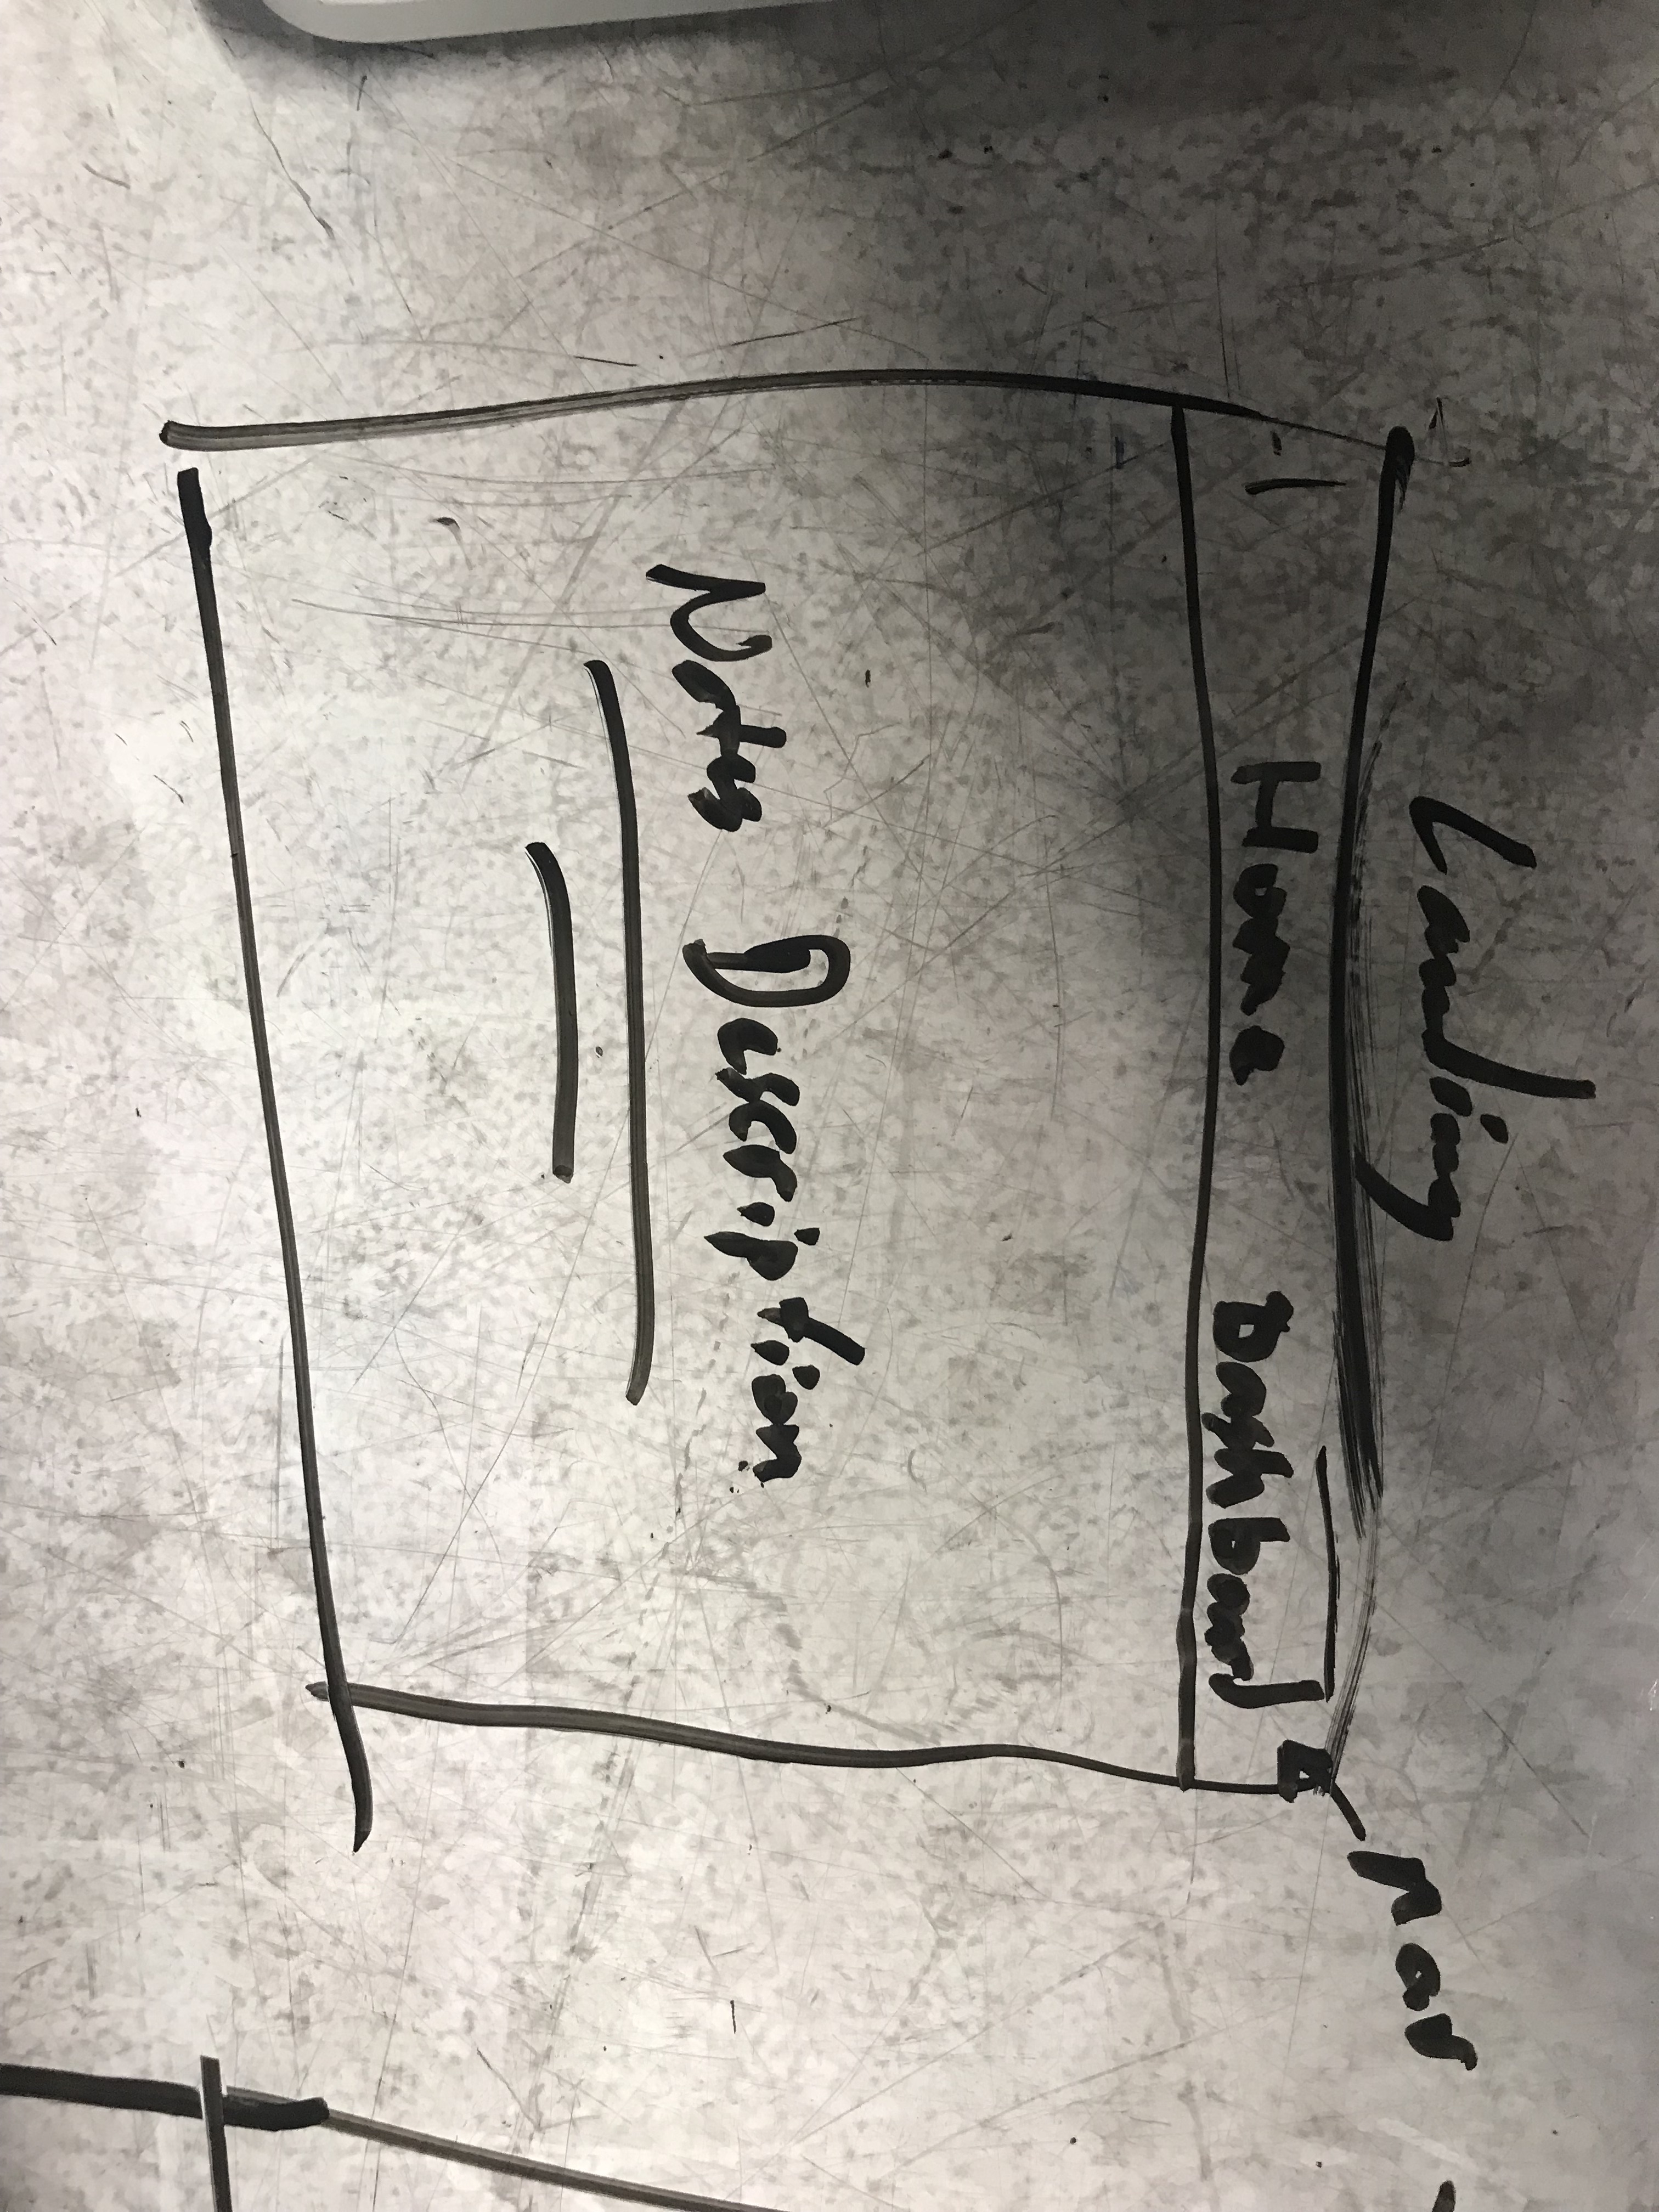 Landing
nav
Home Dashboard
Notes Description